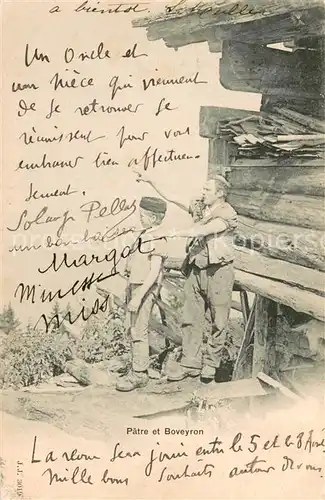 a bientot
Un Oncle et
une Nièce qui viennent
de se retrouver se
réunissent pour vous
embrasser bien affectueu-
sement.
Solange
un bon
Margot
miss
Pâtre et Boveyron
J.J. 3015
La revue sera jouée entre le 5 et le 8
Mille bons souhaits autour de vous